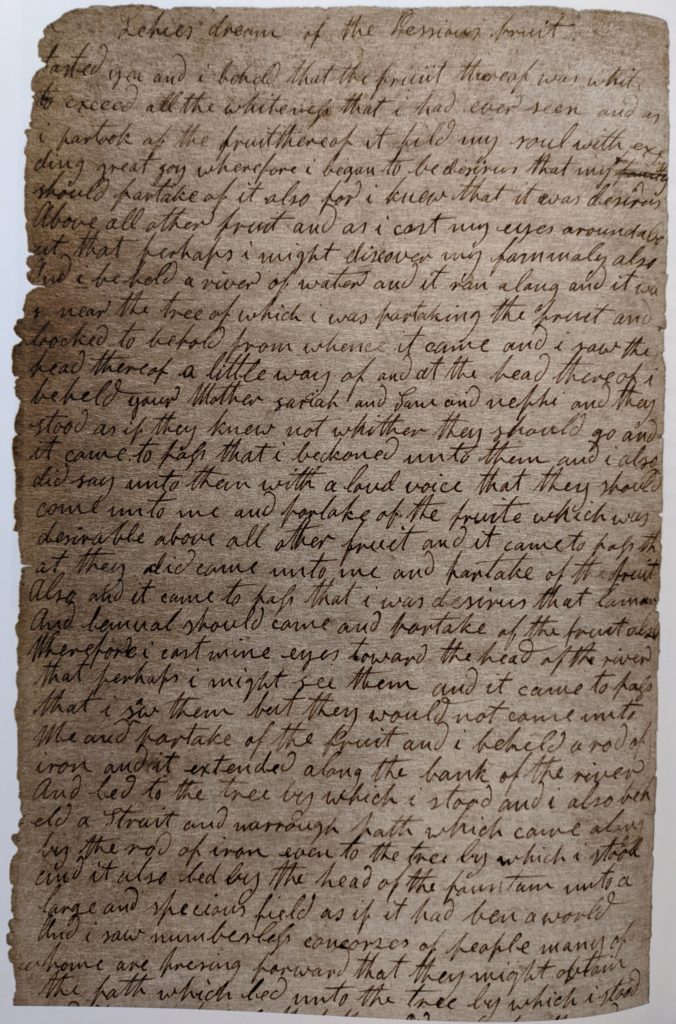 Lehies dream of the Pessious fruit
tasted yea and i beheld that the fruiit thereof was white
to exceed all the whiteness that i had ever seen and as
i partook of the fruit thereof it fild my soul with exe
ding great goy wherefore i began to be desirus that my family
should partake of it also for i knew that it was desirus
Above all other fruit and as i cast my eyes around abo
ut that perhaps i might discover my fammaly also
And i beheld a river of water and it ran along and it wa
s near the tree of which i was partaking the fruit and
loocked to behold from whence it came and i saw the
head thereof a little way of and at the head there of i
beheld your Mother sariah and Sam and nephi and they
stood as if they knew not whither they should go and
it came to pass that i beckoned unto them and i also
did say unto them with a loud voice that they should
come unto me and partake of the fruite which was
desirable above all other fruit and it came to pass th
at they did came unto me and partake of the fruit
Also and it came to pass that i was desirus that laman
And lemual should come and partake of the fruit also
Wherefore i cast mine eyes toward the head of the river
that perhaps i might see them and it came to pass
that i saw them but they would not come unto
Me and partake of the fruit and i beheld a rod of
iron and it extended along the bank of the river
And led to the tree by which i stood and i also beh
eld a Strait and narrough path which came along
by the rod of iron even to the tree by which i stood
and it also led by the head of the fountain unto a
large and specious field as if it had ben a world
And i saw numberless concorses of people many of
whome are presing forward that they might obtain
the path which led unto the tree by which i stood